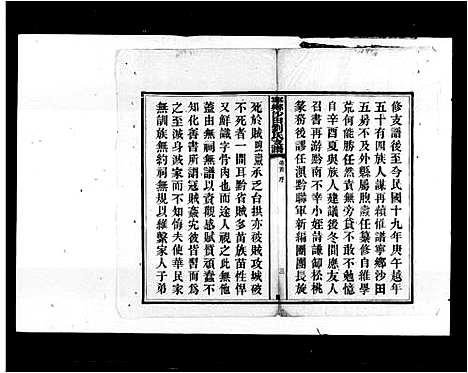 修支譜後至今民國十九年庚午越年
五十有四族人謀再續催譜寧鄉沙田
五房不及外縣屬胞責任纂修自維學
荒何能勝任然責無旁貸不敢不勉憶
自辛酉夏與族人建議後冬間應友人
召書再游黔南不幸小姪詩謙卸松桃
篆務後謬任滇黔聯軍新編團團長旋
寧鄉沙田劉氏支譜
卷首 序
三
死於賊
承乏台拱亦被賊攻城破
不死者一間耳黔省賊多苗族苗性悍
又鮮識字骨肉也而途人視之此無他
蓋由無祠無譜以資觀感賦質頑蠢不
知炎和善書所謂寇賊姦宄後習而為
之至滅身滅家不知悔夫使華民家
無訓族無約祠無規以維繫家人子弟